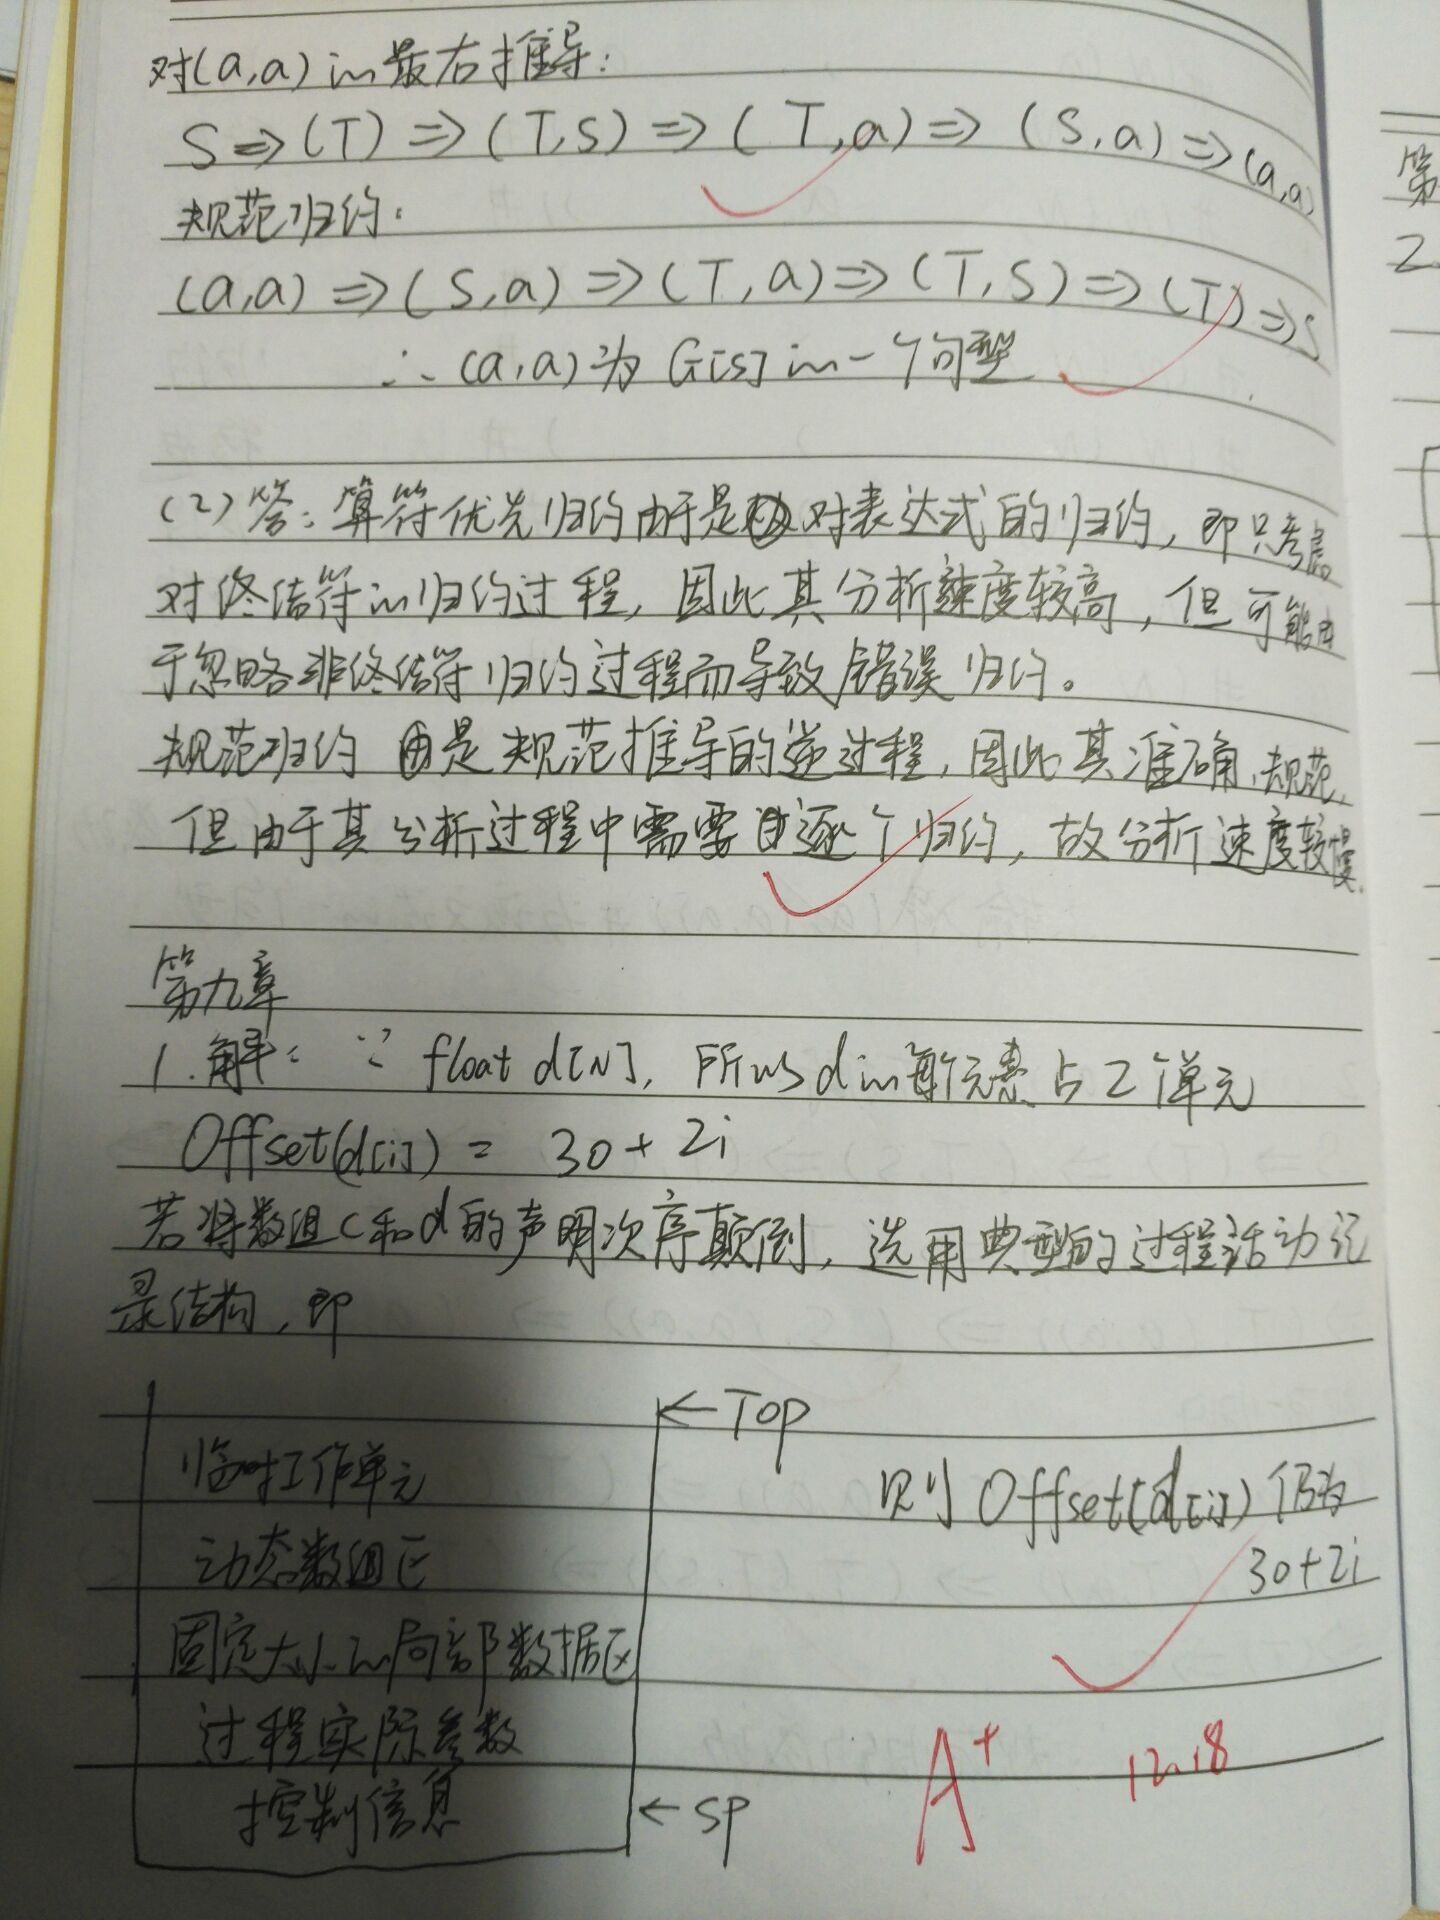 对(a,a)的最右推导:
S⇒(T)⇒(T,S)⇒(T,a)⇒(S,a)⇒(a,a)
规范归约:
(a,a)⇒(S,a)⇒(T,a)⇒(T,S)⇒(T)⇒S
∴(a,a)为G[S]的一个句型
(2)答:算符优先归约由于是对表达式的归约,即只考虑
对终结符的归约过程,因此其分析速度较高,但可能由
于忽略非终结符归约过程而导致错误归约。
规范归约是规范推导的逆过程,因此其准确、规范,
但由于其分析过程中需要逐个归约,故分析速度较慢.
第九章
1.解:∵float d[N],所以d的每个元素占2个单元
Offset(d[i])=30+2i
若将数组c和d的声明次序颠倒,选用典型的过程活动记
录结构,即
←TOP
临时工作单元
动态数组区
固定大小的局部数据区
过程实际参数
控制信息
←SP
则Offset(d[i])仍为
30+2i
A+
12.18
第
2.